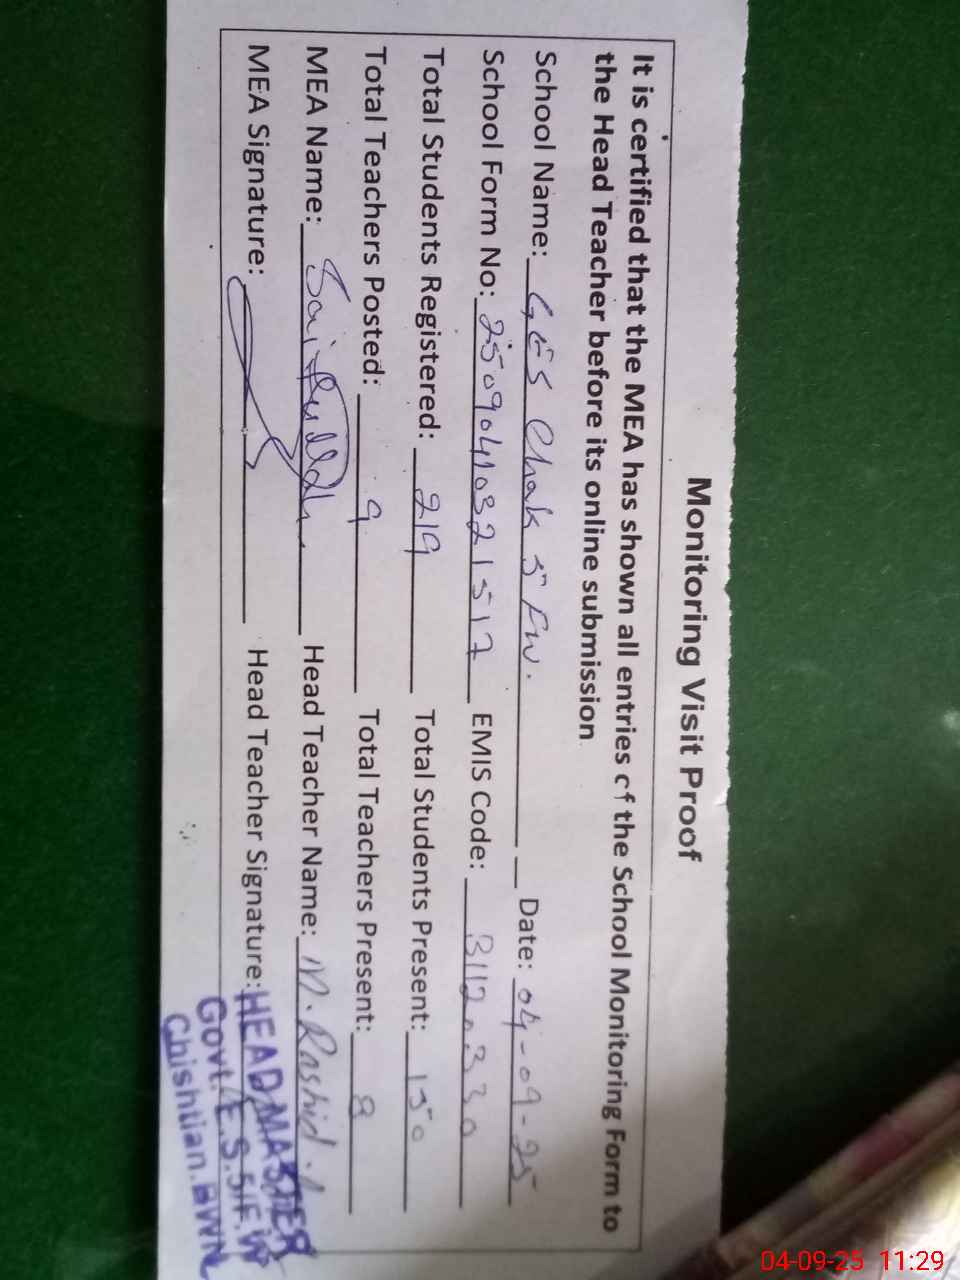 Monitoring Visit Proof
It is certified that the MEA has shown all entries of the School Monitoring Form to
the Head Teacher before its online submission
School Name: GES Chak 5 FW. Date: 04-09-25
School Form No: 25090410321517 EMIS Code: 31120330
Total Students Registered: 219 Total Students Present: 150
Total Teachers Posted: 9 Total Teachers Present: 8
MEA Name: Saifullah Head Teacher Name: M. Rashid
MEA Signature: Head Teacher Signature:
HEADMASTER
Govt. E.S. 5/F.W
Chishtian.BWN
04-09-25 11:29